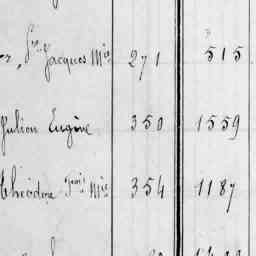 Jacques Mie 271 515
Julien Eugène 350 1559
Théodore Mie 354 1187